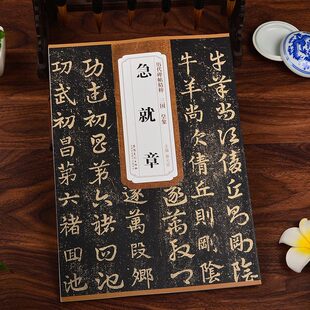 牛羊尚次倩丘則剛陰
牛羊尚次倩丘則剛陰
历代碑帖精粹
三国 皇象
急就章
遂萬段鄉
遂萬段鄉
功武初昌第六褚回池
功武初昌第六褚回池